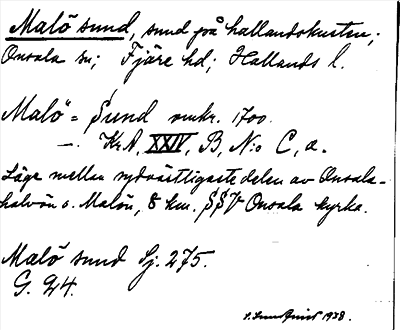 Malö sund, sund på hallandskusten;
Onsala sn; Fjäre hd; Hallands l.
Malö = Sund omkr. 1700.
—. KrA, XXIV, B, N:o C, a.
Läge mellan sydvästligaste delen av Onsala-
halvön o. Malön, 8 km. SSV Onsala kyrka.
Malö sund Sj. 275.
G. 24.
1938.